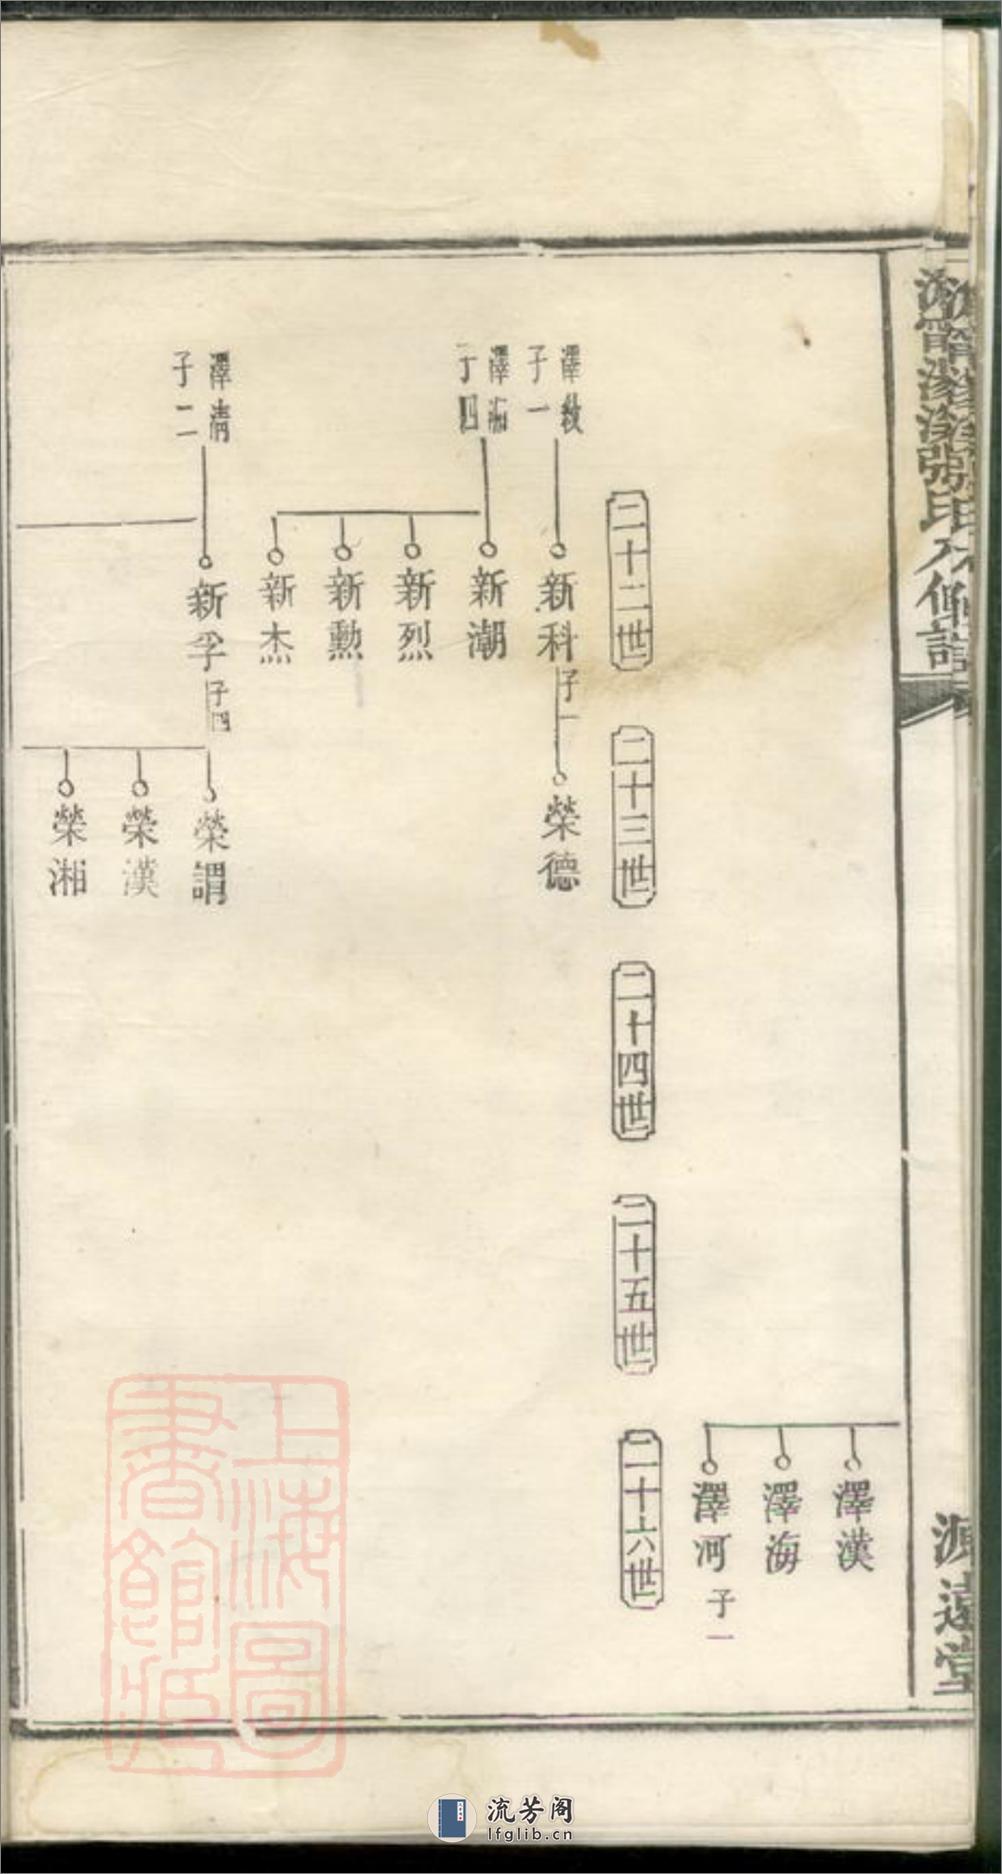 源遠堂
澤漢
澤海
澤河 子一
二十二世
二十三世
二十四世
二十五世
二十六世
子一
新科 子一
榮德
澤湘
子四
新潮
新烈
新勲
新杰
澤清
子二
新孚 子四
榮謂
榮漢
榮湘
上海圖
書館藏
流芳阁
lfglib.cn